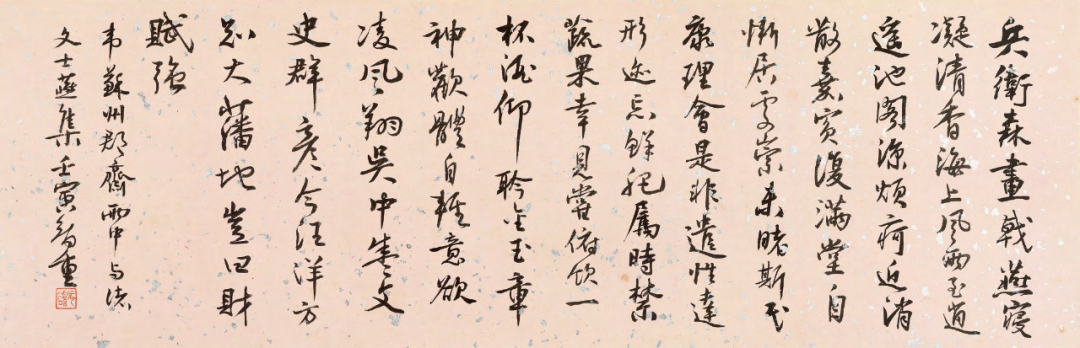 兵衛森畫戟燕寢
凝清香海上風雨至逍
遥池閣涼煩疴近消
散嘉賓復滿堂自
慚居處崇未睹斯民
康理會是非遣性達
形迹忘鮮肥屬時禁
蔬果幸見嘗俯飲一
杯酒仰聆金玉章
神歡體自輕意欲
凌風翔吳中盛文
史群彦今汪洋方
知大藩地豈曰財
賦強
韋蘇州郡齋雨中與諸
文士燕集壬寅